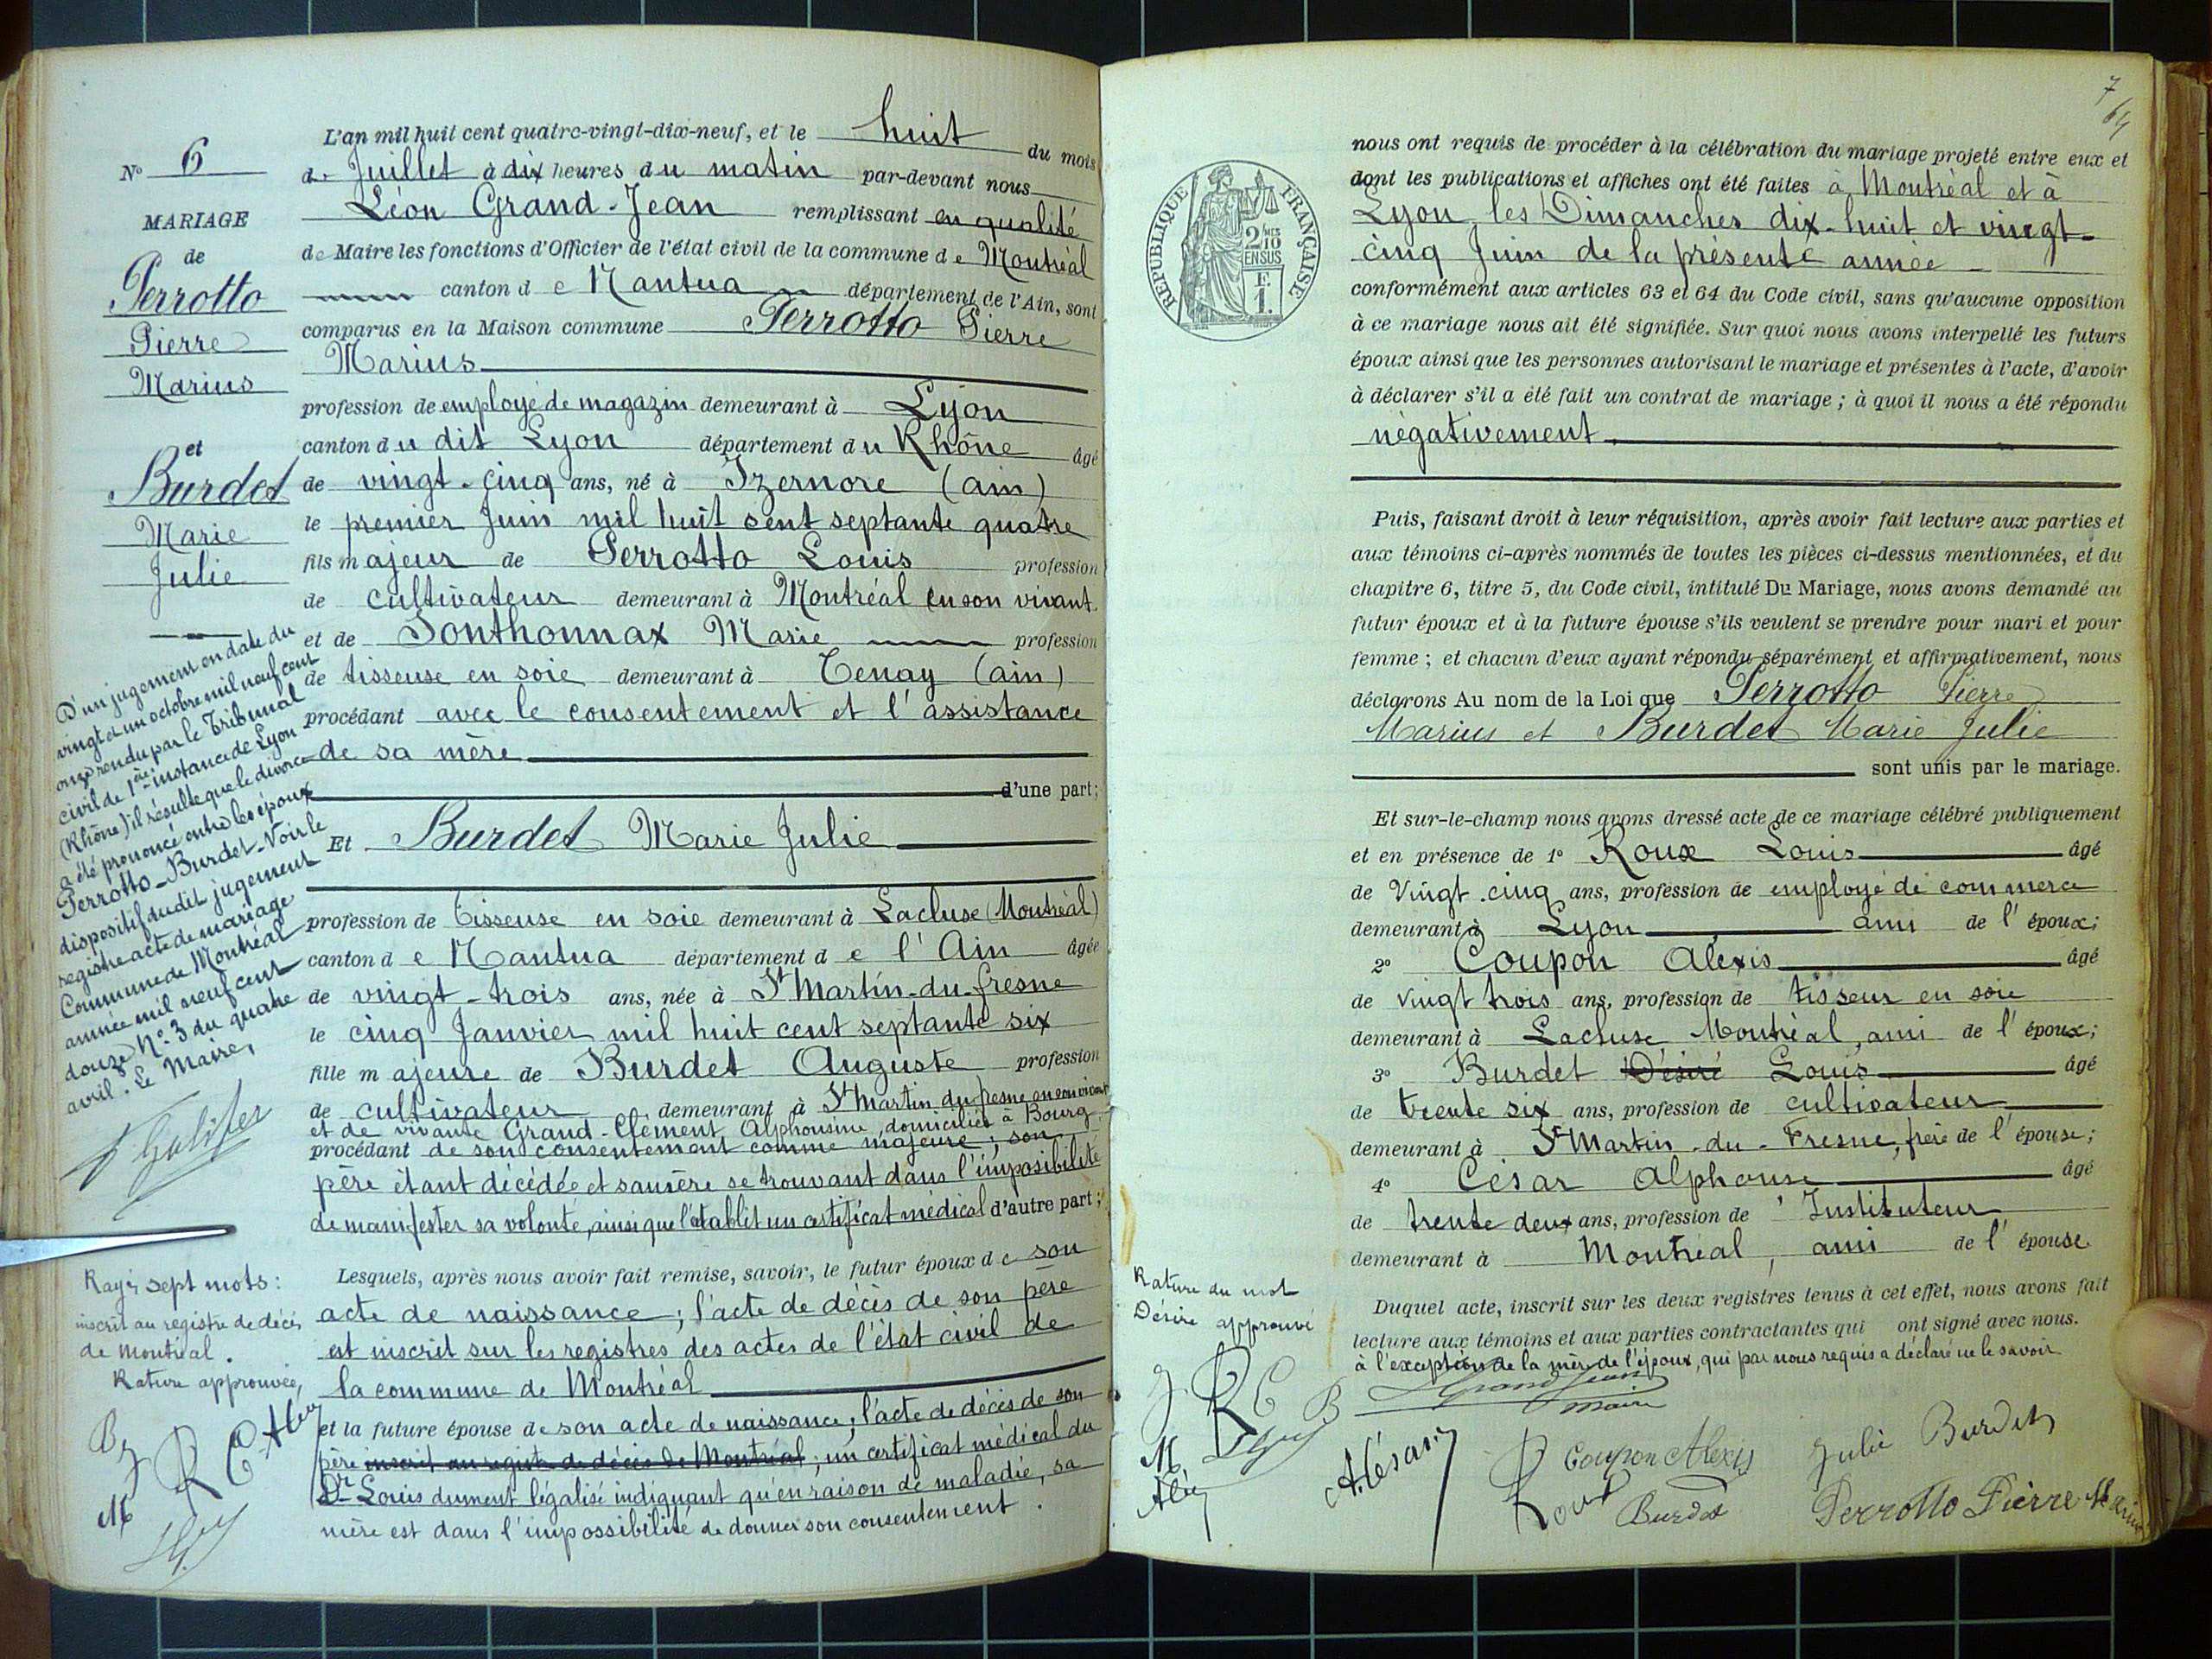 N° 6
MARIAGE
de
Perrotto
Pierre
Marius
et
Burdet
Marie
Julie
D'un jugement en date du
vingt et un octobre mil neuf cent
onze rendu par le Tribunal
civil de 1ère instance de Lyon
(Rhône) il résulte que le divorce
a été prononcé entre les époux
Perrotto-Burdet. Voir le
dispositif dudit jugement
registre acte de mariage
Commune de Montréal
année mil neuf cent
douze N° 3 du quatre
avril. Le Maire,
Rayé sept mots:
inscrit au registre de décès
de Montréal.
Rature approuvée,
L'an mil huit cent quatre-vingt-dix-neuf, et le huit du mois
de Juillet à dix heures du matin par-devant nous
Léon Grand-Jean remplissant en qualité
de Maire les fonctions d'Officier de l'état civil de la commune de Montréal
canton de Nantua département de l'Ain, sont
comparus en la Maison commune Perrotto Pierre
Marius
profession de employé de magazin demeurant à Lyon
canton du dit Lyon département du Rhône âgé
de vingt-cinq ans, né à Izernore (ain)
le premier Juin mil huit cent septante quatre
fils majeur de Perrotto Louis profession
de cultivateur demeurant à Montréal en son vivant
et de Sonthonnax Marie profession
de tisseuse en soie demeurant à Tenay (ain)
procédant avec le consentement et l'assistance
de sa mère
d'une part;
Et Burdet Marie Julie
profession de tisseuse en soie demeurant à Lacluse (Montréal)
canton de Nantua département de l'Ain âgée
de vingt-trois ans, née à St Martin-du-fresne
le cinq Janvier mil huit cent septante six
fille majeure de Burdet Auguste profession
de cultivateur demeurant à St Martin du fresne en son vivant
et de vivante Grand-Clément Alphonsine, domiciliée à Bourg,
procédant de son consentement comme majeure; son
père étant décédée et sa mère se trouvant dans l'imposibilité
de manifester sa volonté, ainsi que l'établit un certificat médical d'autre part;
Lesquels, après nous avoir fait remise, savoir, le futur époux de son
acte de naissance; l'acte de décès de son père
est inscrit sur les registres des actes de l'état civil de
la commune de Montréal
et la future épouse de son acte de naissance, l'acte de décès de son
père inscrit au registre de décès de Montréal; un certificat médical du
Dr Louis dument légalisé indiquant qu'en raison de maladie, sa
mère est dans l'impossibilité de donner son consentement.
7
64
REPUBLIQUE FRANÇAISE
2/10 MES
EN SUS
F.
1.
nous ont requis de procéder à la célébration du mariage projeté entre eux et
dont les publications et affiches ont été faites à Montréal et à
Lyon, les Dimanches dix-huit et vingt-
cinq Juin de la présente année
conformément aux articles 63 et 64 du Code civil, sans qu'aucune opposition
à ce mariage nous ait été signifiée. Sur quoi nous avons interpellé les futurs
époux ainsi que les personnes autorisant le mariage et présentes à l'acte, d'avoir
à déclarer s'il a été fait un contrat de mariage; à quoi il nous a été répondu
négativement.
Puis, faisant droit à leur réquisition, après avoir fait lecture aux parties et
aux témoins ci-après nommés de toutes les pièces ci-dessus mentionnées, et du
chapitre 6, titre 5, du Code civil, intitulé Du Mariage, nous avons demandé au
futur époux et à la future épouse s'ils veulent se prendre pour mari et pour
femme; et chacun d'eux ayant répondu séparément et affirmativement, nous
déclarons Au nom de la Loi que Perrotto Pierre
Marius et Burdet Marie Julie
sont unis par le mariage.
Et sur-le-champ nous avons dressé acte de ce mariage célébré publiquement
et en présence de 1° Roux Louis âgé
de Vingt-cinq ans, profession de employé de commerce
demeurant à Lyon ami de l'époux;
2° Coupon Alexis âgé
de vingt trois ans, profession de tisseur en soie
demeurant à Lacluse Montréal, ami de l'époux;
3° Burdet Désiré Louis âgé
de trente six ans, profession de cultivateur
demeurant à St Martin-du-Fresne, frère de l'épouse;
4° César Alphonse âgé
de trente deux ans, profession de Instituteur
demeurant à Montréal, ami de l'épouse
Duquel acte, inscrit sur les deux registres tenus à cet effet, nous avons fait
lecture aux témoins et aux parties contractantes qui ont signé avec nous.
à l'exception de la mère de l'époux, qui par nous requis a déclaré ne le savoir
Rature du mot
Désiré approuvé
Grand Jean
maire
A. César
Roux
Coupon Alexis
Burdet
Julie Burdet
Perrotto Pierre Marius